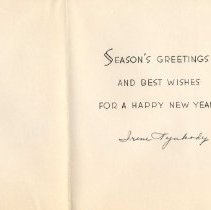 SEASON'S GREETINGS
AND BEST WISHES
FOR A HAPPY NEW YEAR
Irene